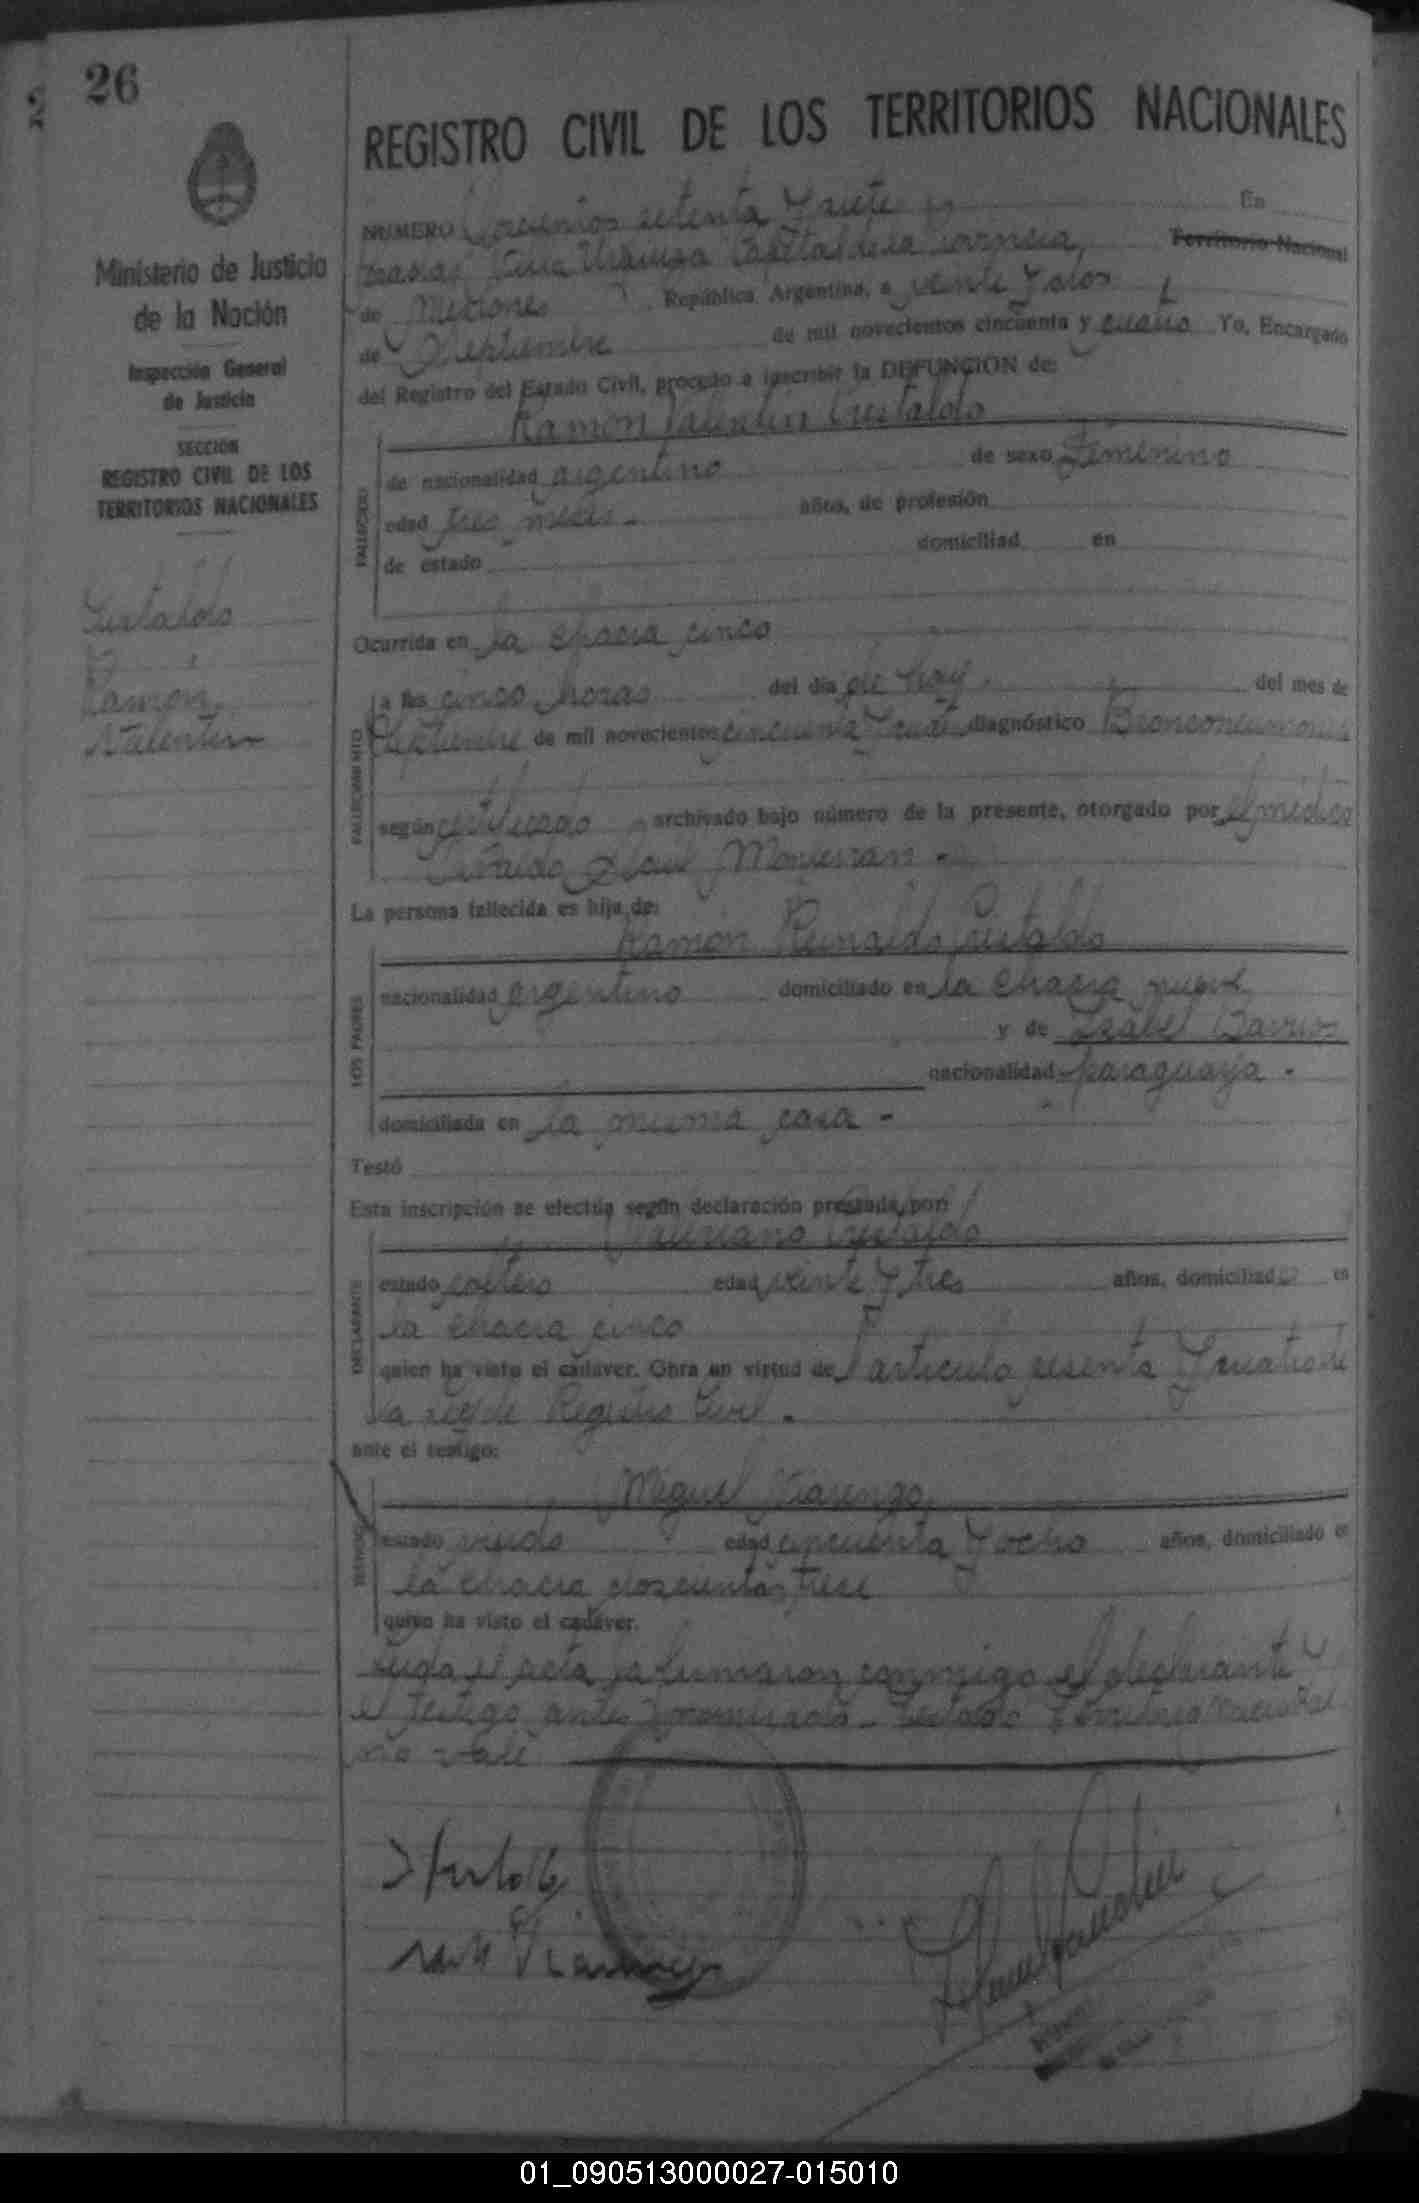 26
REGISTRO CIVIL DE LOS TERRITORIOS NACIONALES
Ministerio de Justicia
de la Nación
Inspección General
de Justicia
SECCION
REGISTRO CIVIL DE LOS
TERRITORIOS NACIONALES
Ramón
Valentin
NUMERO Doscientos setenta y siete En
Posadas, Capital de la Provincia, Territorio Nacional
de Misiones República Argentina, a veinte y dos
de Septiembre de mil novecientos cincuenta y cuatro Yo, Encargado
del Registro del Estado Civil, procedo a inscribir la DEFUNCION de:
Ramón Valentin
FALLECIDO
de nacionalidad argentino de sexo Femenino
edad tres meses - años, de profesión
de estado domiciliad en
Ocurrida en la chacra cinco
FALLECIMIENTO
a las cinco horas del día de hoy del mes de
Septiembre de mil novecientos cincuenta y cuatro diagnóstico Bronconeumonia
según certificado archivado bajo número de la presente, otorgado por el médico
La persona fallecida es hija de:
Ramón Reinaldo
LOS PADRES
nacionalidad argentino domiciliado en la chacra
y de Isabel Barrios
nacionalidad paraguaya -
domiciliada en la misma casa -
Testó
Esta inscripción se efectúa según declaración prestada por:
DECLARANTE
estado soltero edad veinte y tres años, domiciliado en
la chacra cinco
quien ha visto el cadáver. Obra en virtud del artículo sesenta y cuatro de
la ley de Registro Civil -
ante el testigo:
Miguel
TESTIGO
estado viudo edad cincuenta y ocho años, domiciliado en
la chacra doscientos trece
quien ha visto el cadáver.
Leida el acta la firmaron conmigo el declarante y
el testigo antes nombrado - Testado Territorio Nacional
no vale
01_090513000027-015010